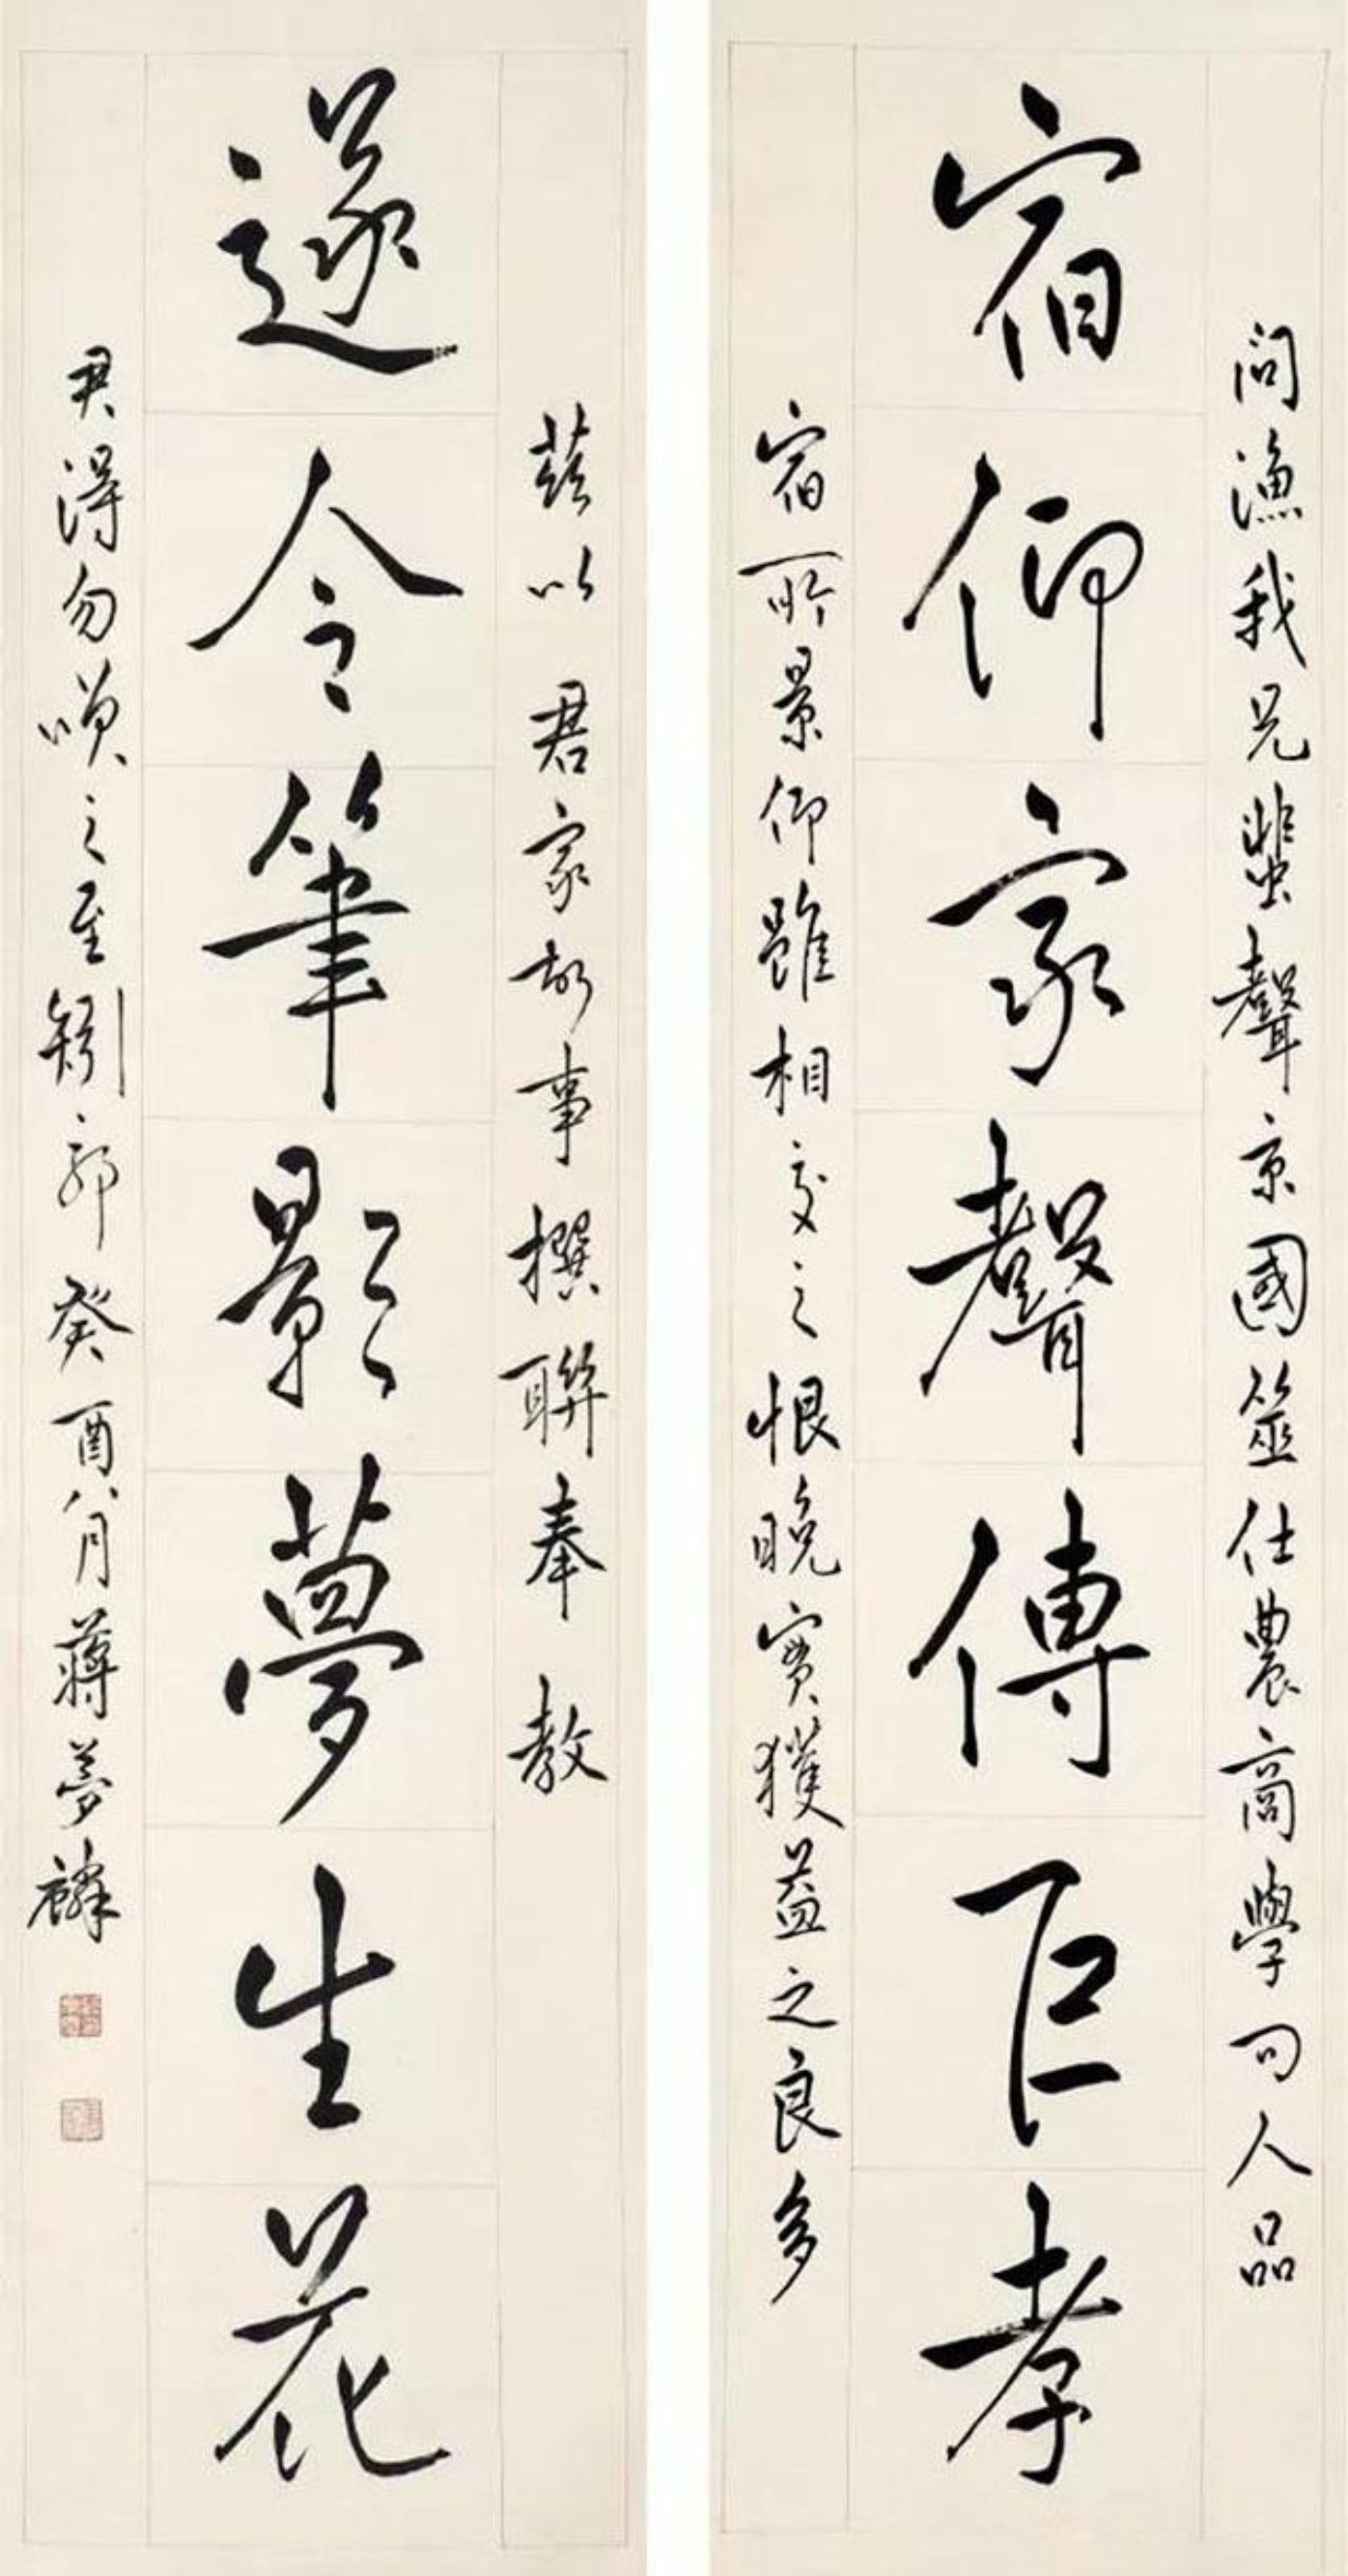 問漁我兄蜚聲京國筮仕農商學問人品
宿仰家聲傳巨孝
宿所景仰雖相交之恨晚實獲益之良多
茲以君家故事撰聯奉教
遂令筆影夢生花
君得勿嘆之至 郭癸酉八月蔣夢麟